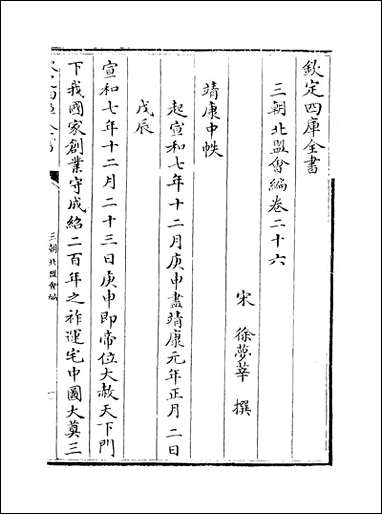 欽定四庫全書
三朝北盟會編卷二十六
宋 徐夢莘 撰
靖康中帙
起宣和七年十二月庚申盡靖康元年正月二日
戊辰
宣和七年十二月二十三日庚申即帝位大赦天下門
下我國家創業守成紹二百年之祚運宅中圖大奠三
三朝北盟會編